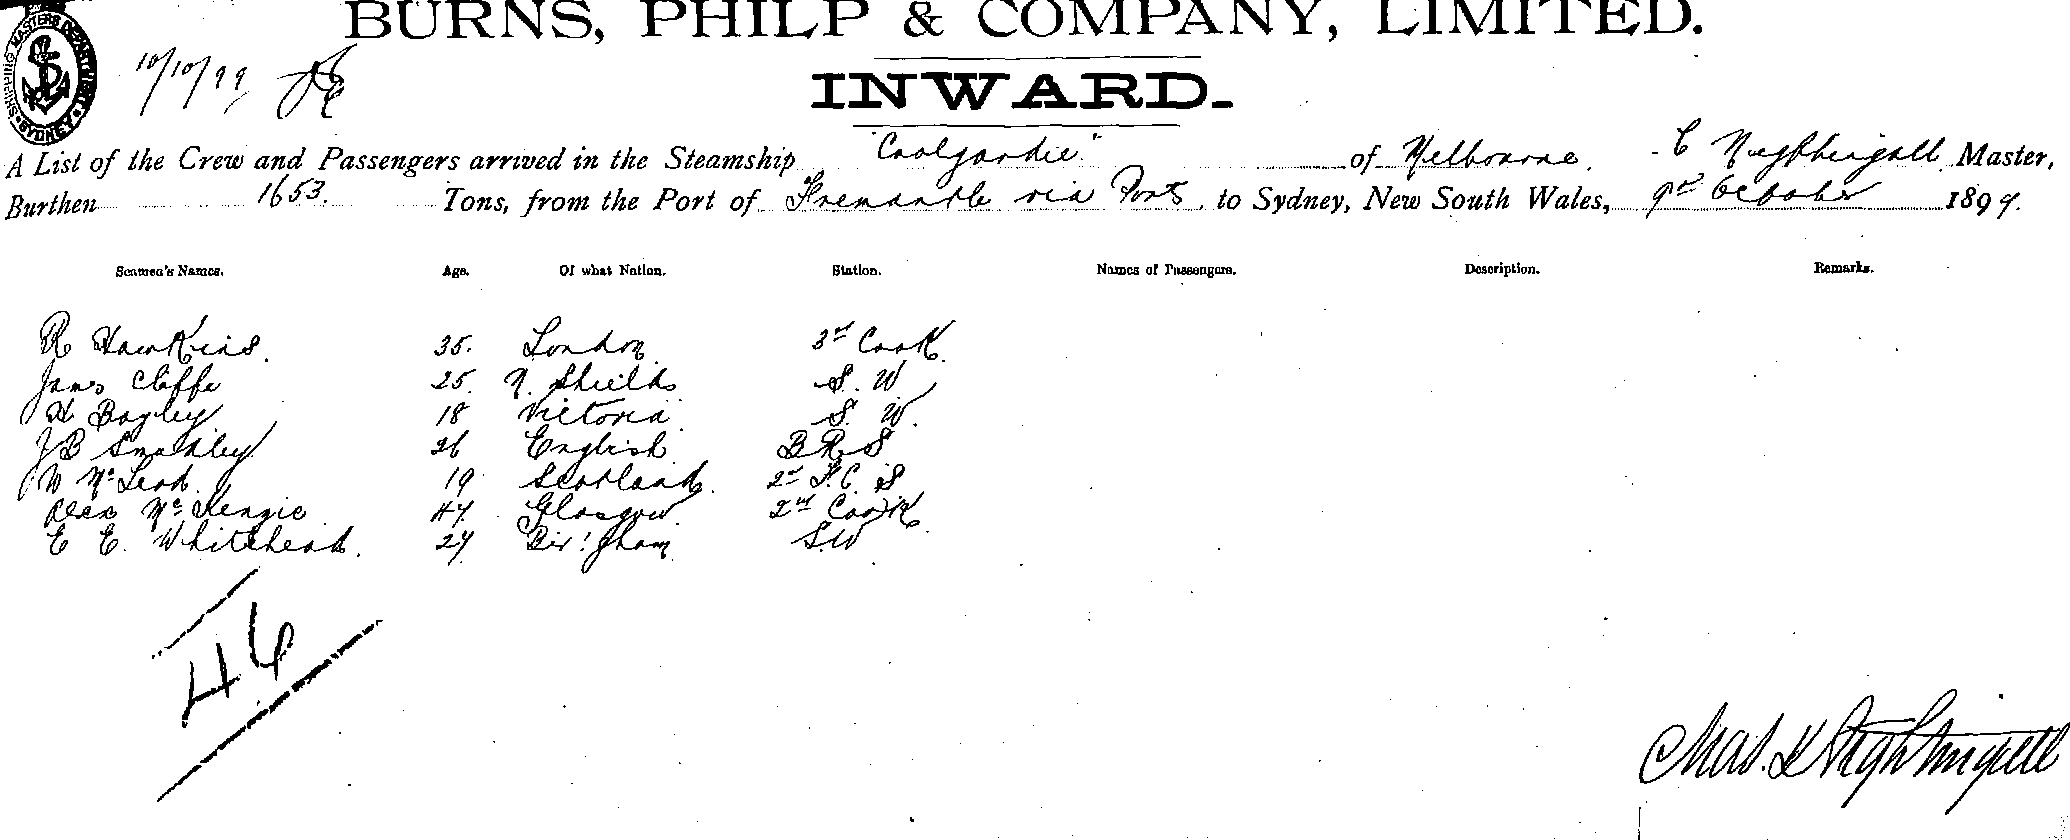 BURNS, PHILP & COMPANY, LIMITED.
SHIPPING MASTERS DEPARTMENT SYDNEY
10/10/99
INWARD.
A List of the Crew and Passengers arrived in the Steamship "Coolgardie" of Melbourne. C Nightingall Master,
Burthen 1653. Tons, from the Port of Fremantle via Ports to Sydney, New South Wales, 9th October 1899.
Seamen's Names. Age. Of what Nation. Station. Names of Passengers. Description. Remarks.
R Hawkins. 35. London 3rd Cook
James Cliffe 25. N. Shields S. W
H Bagley 18 Victoria S. W.
J B Smithley 26 English B. R. S
W McLeod. 19 Scotland. 2nd S. C. S
Alex McKenzie 47. Glasgow. 2nd Cook
E E. Whitehead. 27 Bir'gham S.W
46
Chas. Nightingall